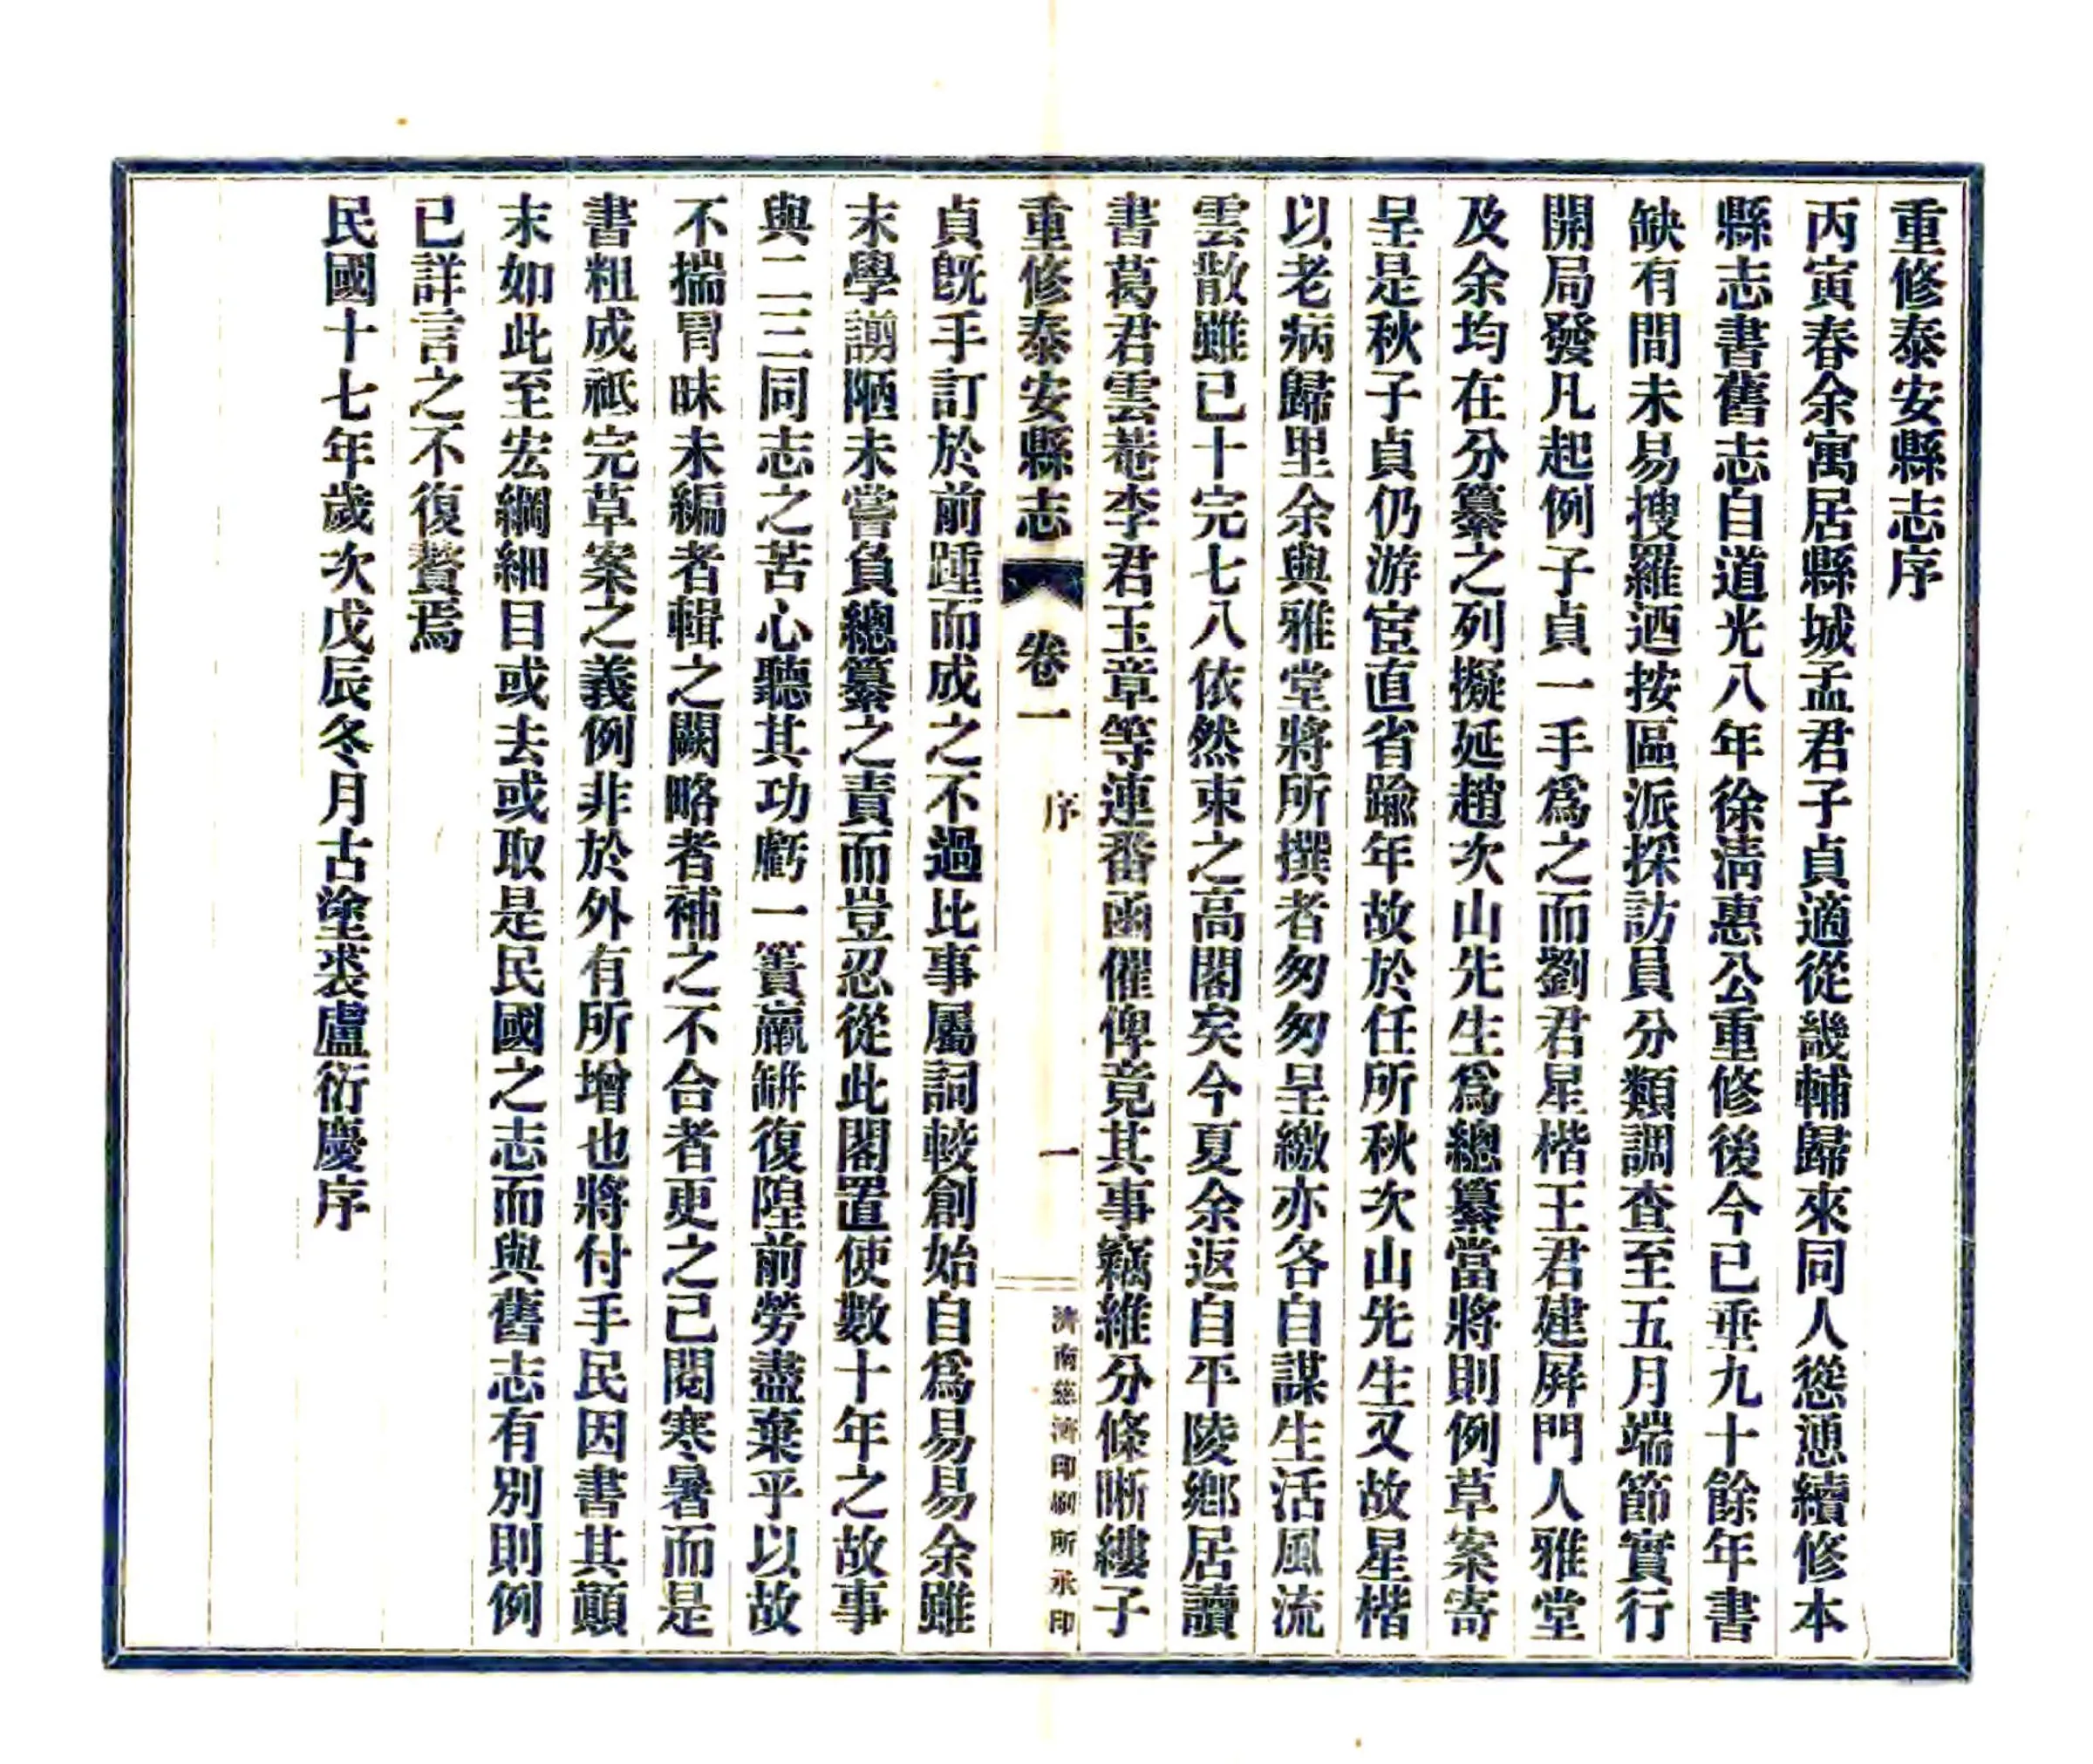 重修泰安縣志序
丙寅春余寓居縣城孟君子貞適從畿輔歸來同人慫恿續修本
縣志書舊志自道光八年徐淸惠公重修後今已垂九十餘年書
缺有間未易搜羅迺按區派採訪員分類調查至五月端節實行
開局發凡起例子貞一手爲之而劉君星楷王君建屛門人雅堂
及余均在分纂之列擬延趙次山先生爲總纂當將則例草案寄
呈是秋子貞仍游宦直省踰年故於任所秋次山先生又故星楷
以老病歸里余與雅堂將所撰者匆匆呈繳亦各自謀生活風流
雲散雖已十完七八依然束之高閣矣今夏余返自平陵鄉居讀
書葛君雲菴李君玉章等連番函催俾竟其事竊維分條晰縷子
重修泰安縣志 卷一 序 一 濟南慈濟印刷所承印
貞旣手訂於前踵而成之不過比事屬詞較創始自爲易易余雖
末學謭陋未嘗負總纂之責而豈忍從此閣置使數十年之故事
與二三同志之苦心聽其功虧一簣羸缾復隍前勞盡棄乎以故
不揣冒昧未編者輯之闕略者補之不合者更之已閱寒暑而是
書粗成祗完草案之義例非於外有所增也將付手民因書其顚
末如此至宏綱細目或去或取是民國之志而與舊志有別則例
已詳言之不復贅焉
民國十七年歲次戊辰冬月古塗裘盧衍慶序